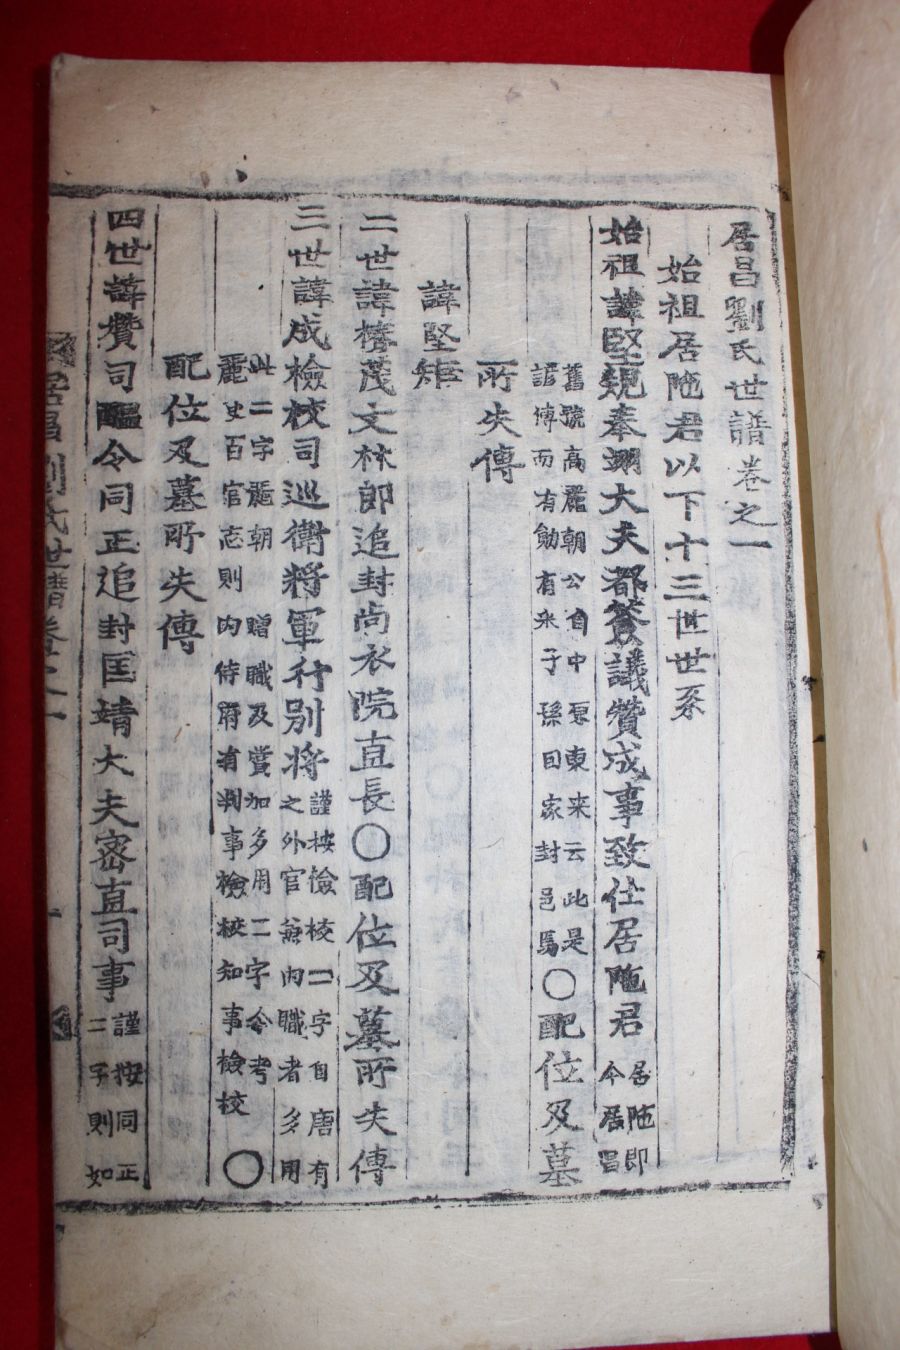 居昌劉氏世譜卷之一
始祖居陁君以下十三世世系
始祖諱堅規奉翊大夫都僉議贊成事致仕居陁君居陁即今居昌
舊號高麗朝公自中原東来云此是諺傳而有勛有来子孫回家封邑焉〇配位及墓
所失傳
諱堅矩
二世諱櫅茂文林郎追封尚衣院直長〇配位及墓所失傳
三世諱成檢校司巡衛將軍行別將謹按檢校二字自唐有之外官兼内職者多用
此二字麗朝贈職及賞加多用二字今考麗史百官志則内侍府有判事檢校知事檢校〇
配位及墓所失傳
四世諱攢司醞令同正追封匡靖大夫密直司事謹按同正二字則如
居昌劉氏世譜卷之一